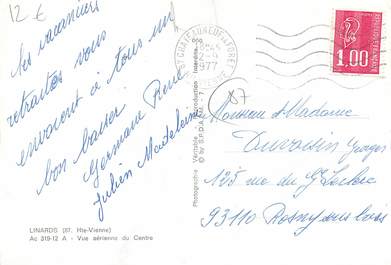 12 €
les vacanciers
retraités vous
envoient à tous un
bon baiser
Germaine René
Julien Madeleine
LINARDS (87. Hte-Vienne)
Ac 319-12 A - Vue aérienne du Centre
Photographie Véritable - Reproduction Interdite
© by S.P.A.D.E.M. - 7
87 CHATEAUNEUF LA FORET
1977
HTE VIENNE
1.00
87
Monsieur et Madame
Duvoisin Georges
125 rue du Gl Leclerc
93110 Rosny sous bois